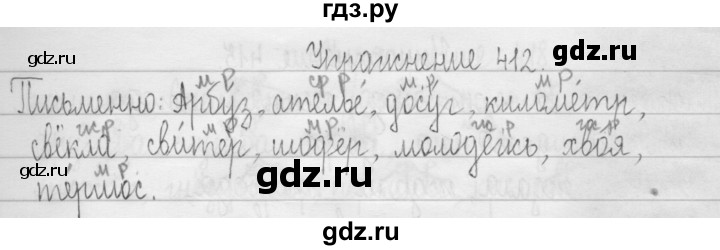 гдз.ру
gdz.ru gdz.ru gdz.ru
Упражнение 412.
м.р ср.р м.р м.р
Письменно: Арбуз, ателье́, досу́г, киломе́тр,
ж.р м.р м.р ж.р ж.р
свёкла, сви́тер, шофёр, молодёжь, хво́я,
м.р
те́рмос.
gdz.ru gdz.ru gdz.ru
gdz.ru gdz.ru